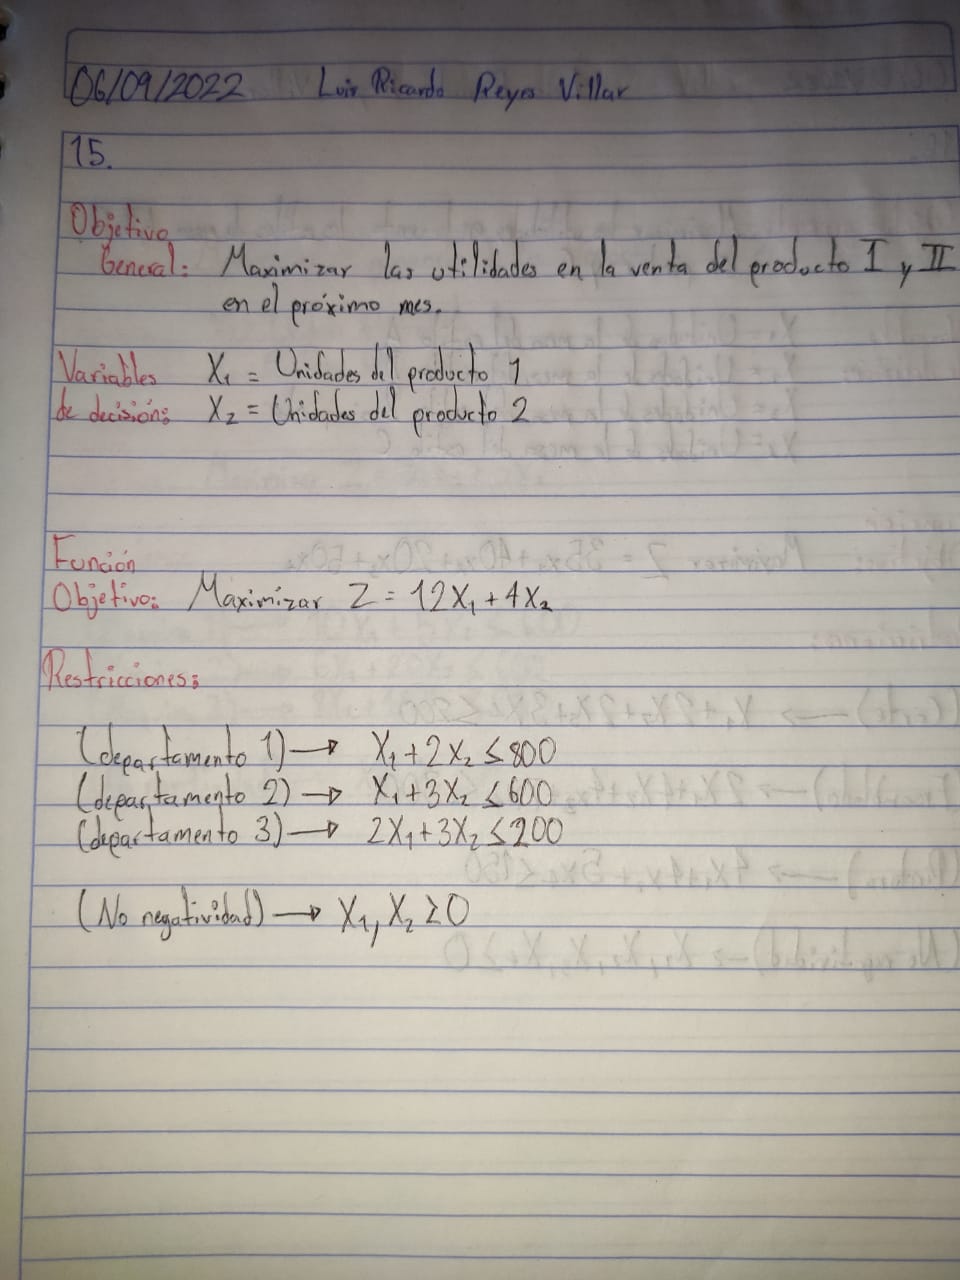 06/09/2022 Luis Ricardo Reyes Villar
15.
Objetivo
General: Maximizar las utilidades en la venta del producto I y II
en el próximo mes.
Variables X₁ = Unidades del producto 1
de decisión: X₂ = Unidades del producto 2
Función
Objetivo: Maximizar Z = 12X₁ + 4X₂
Restricciones:
(departamento 1) → X₁ + 2X₂ ≤ 800
(departamento 2) → X₁ + 3X₂ ≤ 600
(departamento 3) → 2X₁ + 3X₂ ≤ 200
(No negatividad) → X₁, X₂ ≥ 0